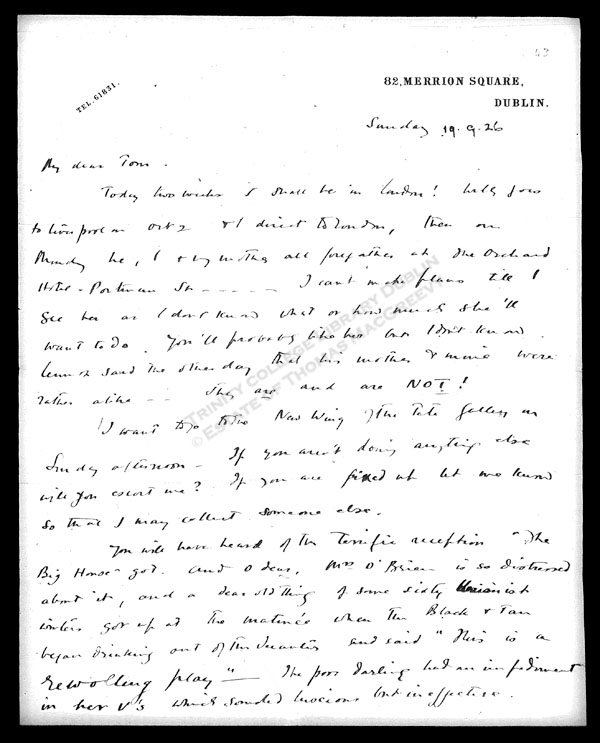 53
82, MERRION SQUARE,
DUBLIN.
TEL. 61831.
Sunday 19.9.26
My dear Tom.
Today two weeks I shall be in London! Willy goes
to Liverpool on Oct 2 & I direct to London, then on
Monday he, I & my mother all foregather at the Orchard
Hotel - Portman St - - - - - I can't make plans till I
see her as I don't know what or how much she'll
want to do. You'll probably like her but I don't know.
Lennox said the other day that his mother & mine were
rather alike - - They are and are NOT!
I want to go to the New Wing of the Tate Gallery on
Sunday afternoon - If you aren't doing anything else
will you escort me? If you are fixed up let me know
so that I may collect someone else.
You will have heard of the terrific reception "The
Big House" got. And O dear, Mrs O'Brien is so distressed
about it, and a dear old thing of some sixty Unionist
winters got up at the matinée when the Black & Tan
began drinking out of the decanter and said "This is a
rewolting play" — The poor darling had an impediment
in her v's which sounded luscious but ineffective.
TRINITY COLLEGE LIBRARY DUBLIN
© ESTATE OF THOMAS MACGREEVY